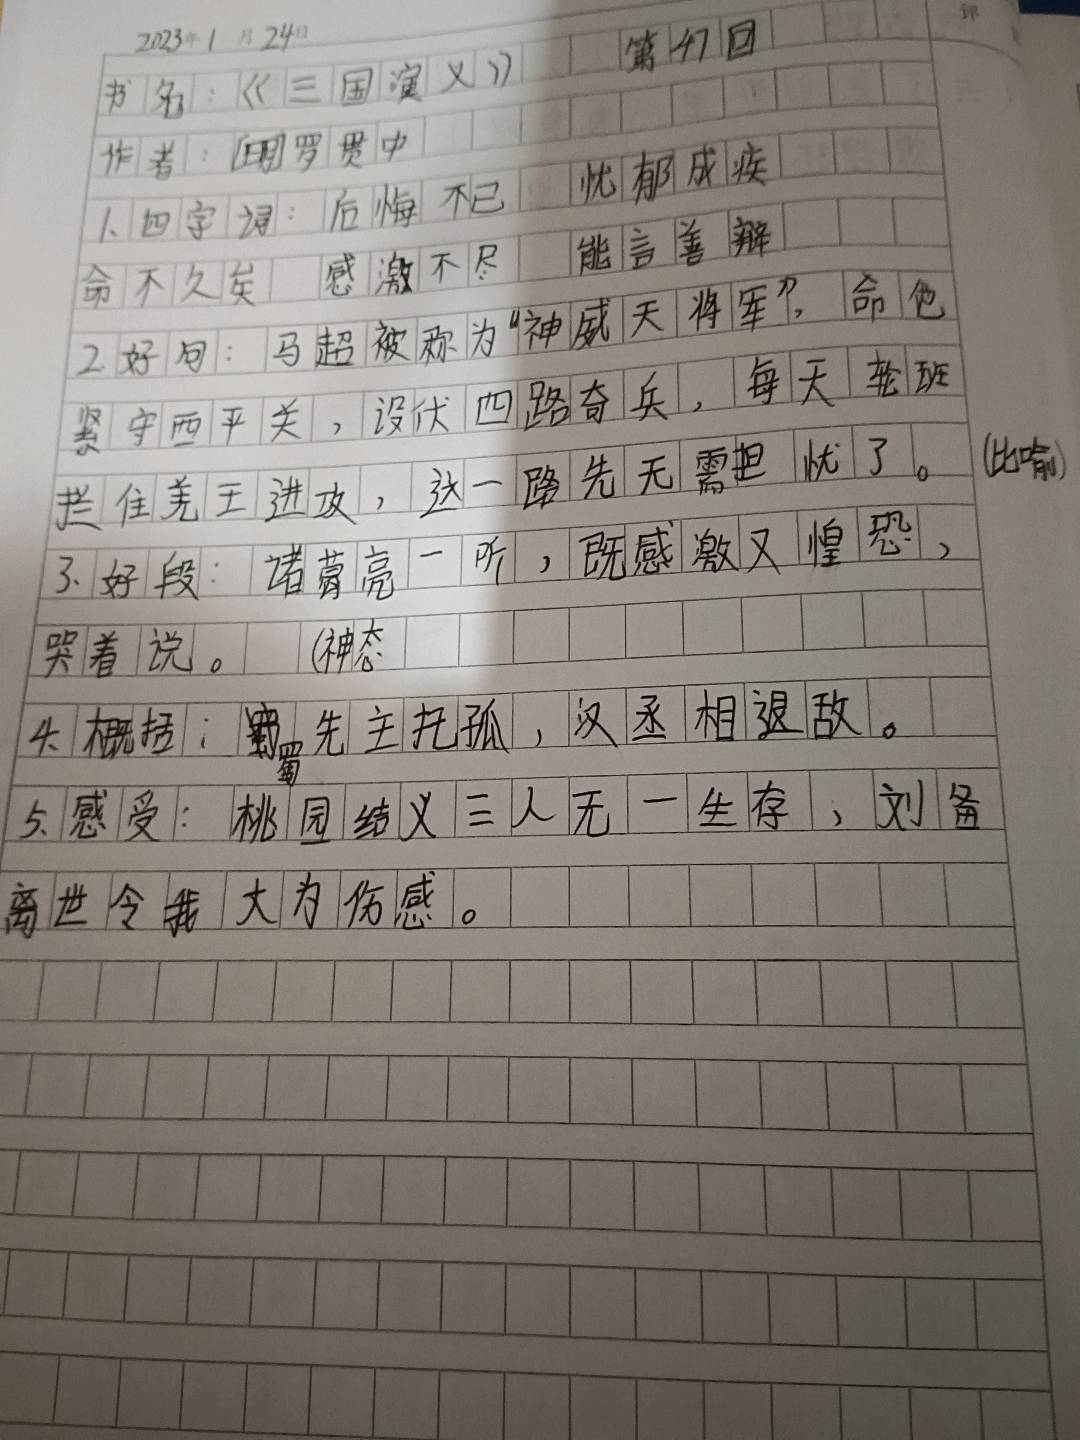 2023年1月24日
第47回
书名：《三国演义》
作者：[明]罗贯中
1、四字词：后悔不已 忧郁成疾
命不久矣 感激不尽 能言善辩
2、好句：马超被称为“神威天将军”，命他
紧守西平关，设伏四路奇兵，每天轮班
拦住羌王进攻，这一路先无需担忧了。(比喻)
3、好段：诸葛亮一听，既感激又惶恐，
哭着说。(神态
4、概括：蜀先主托孤，汉丞相退敌。
5、感受：桃园结义三人无一生存，刘备
离世令我大为伤感。